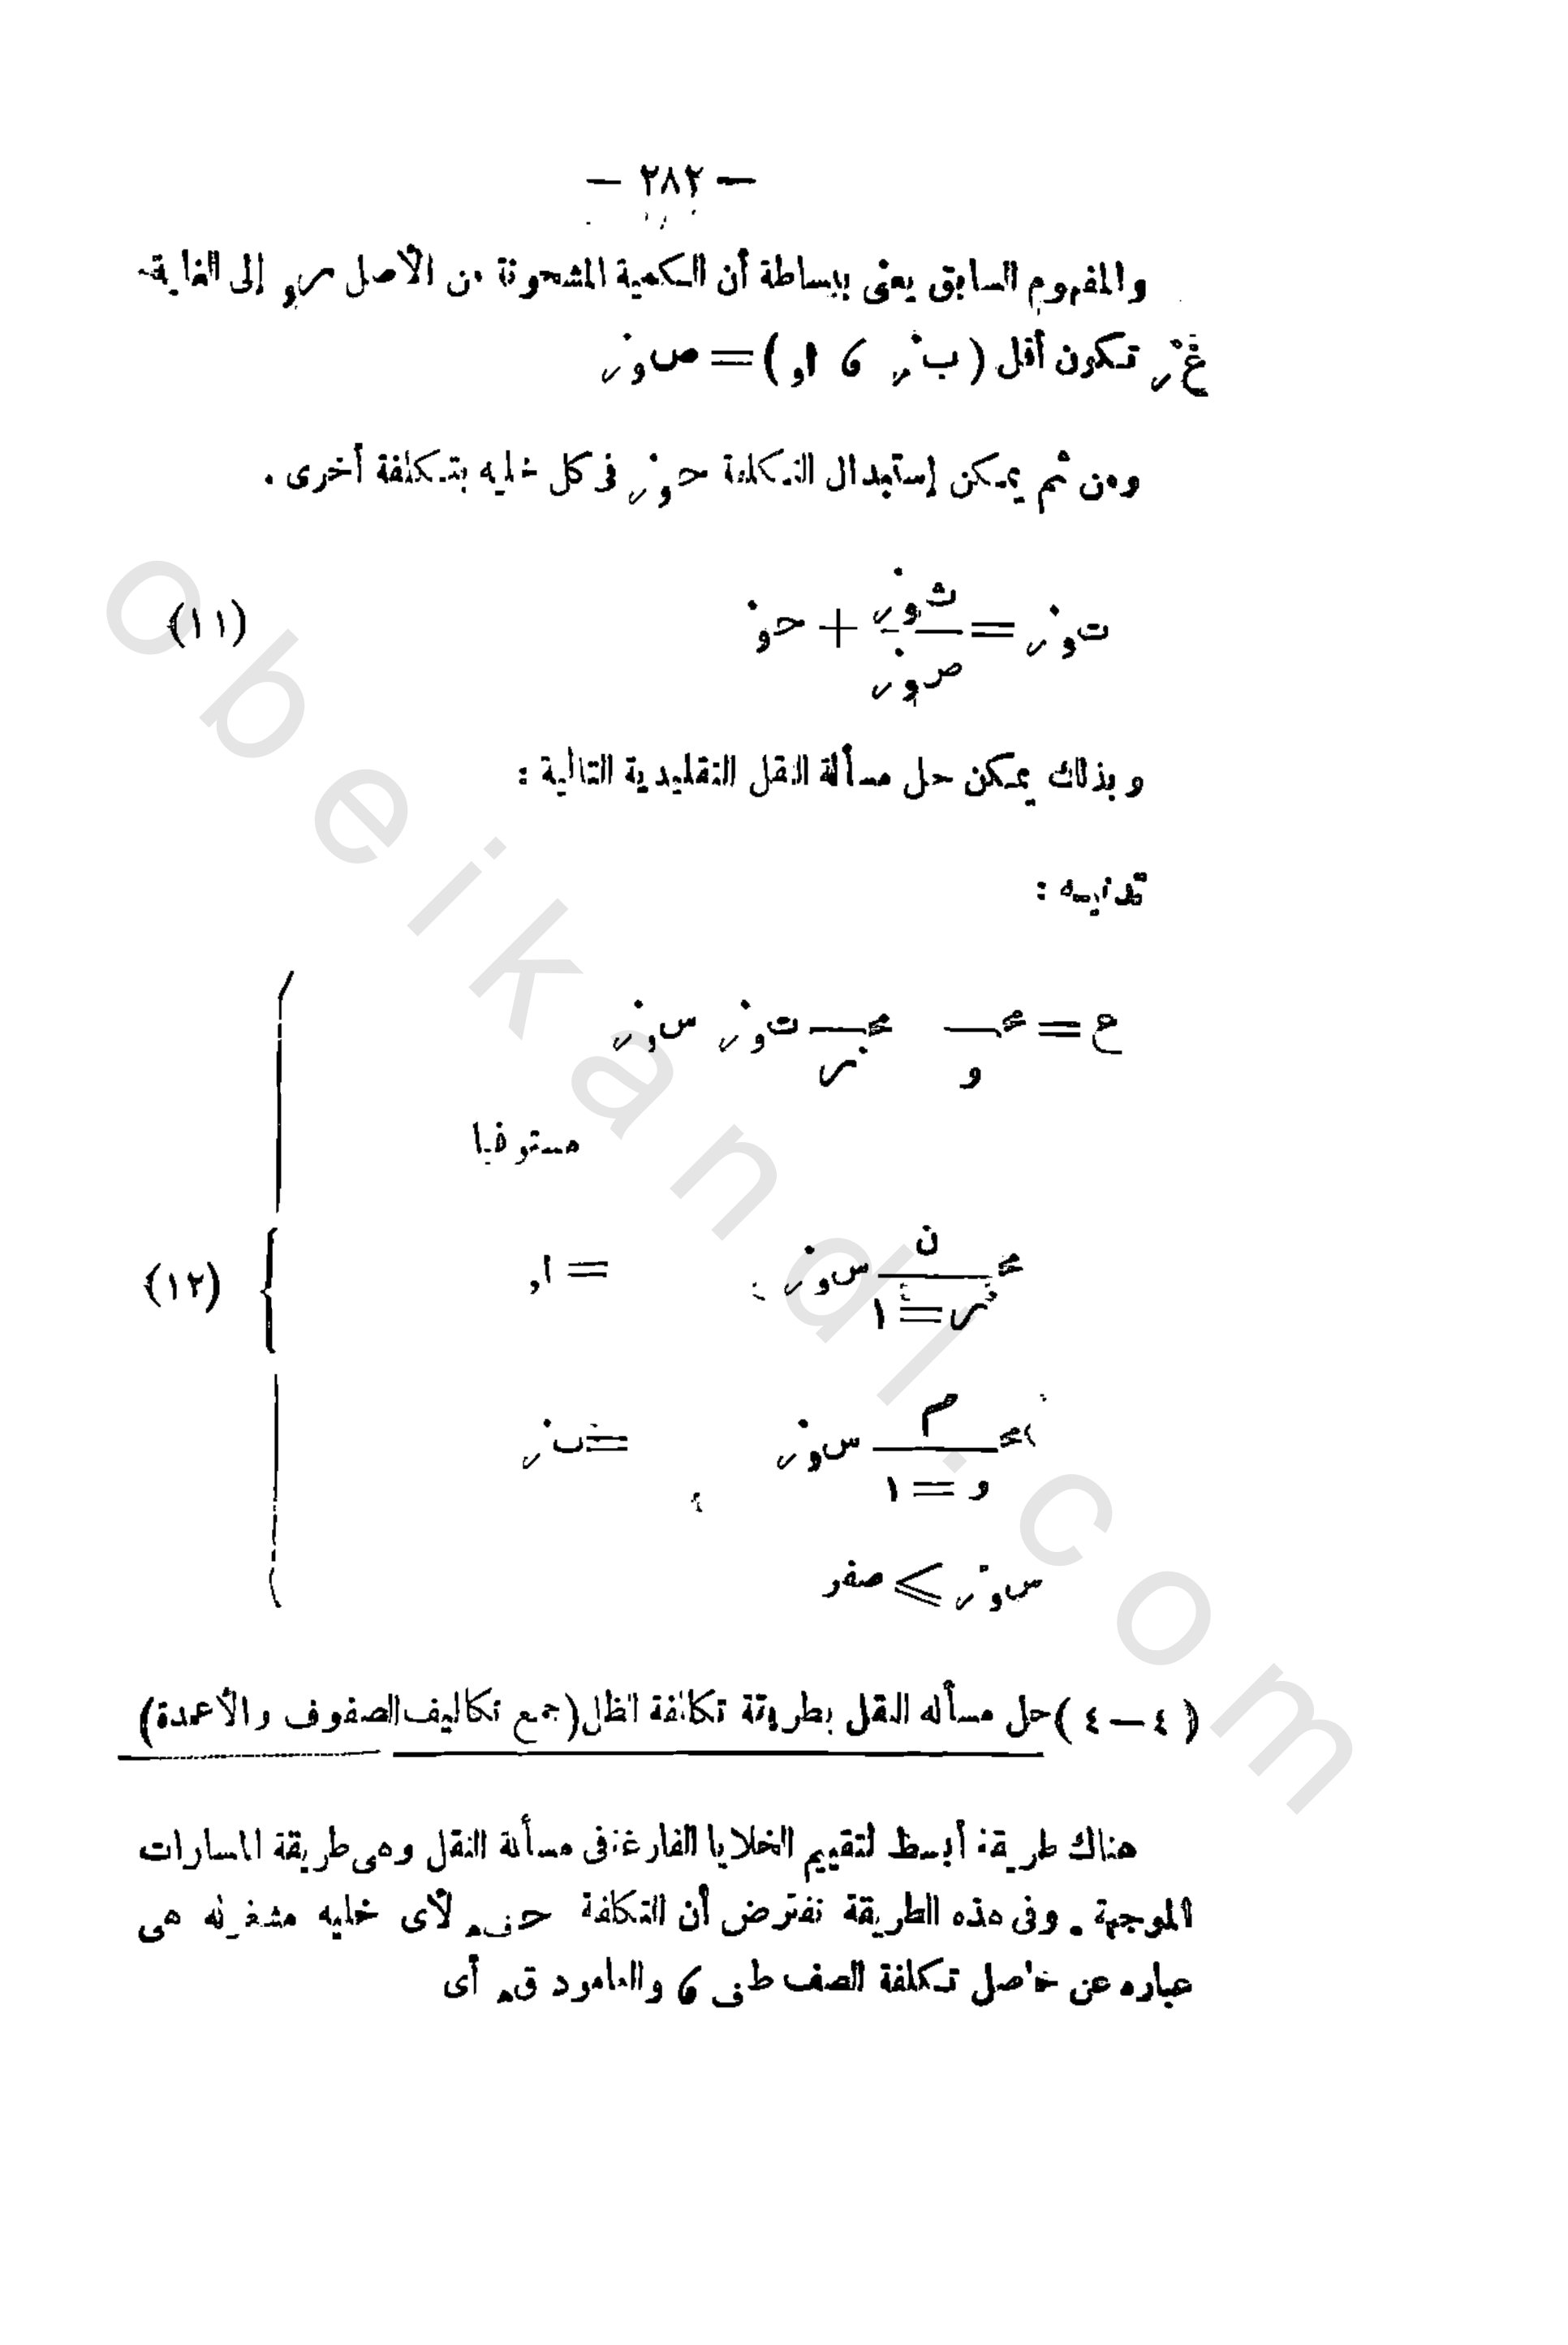 — ٢٨٢ —
والمفهوم السابق يعنى ببساطة أن الكمية المشحونة من الأصل مرو إلى الغاية
غ ز تكون أقل ( ب ز ، أو ) = ص و ز
ومن ثم يمكن إستبدال التكلفة ح و ز فى كل خليه بتكلفة أخرى .
ت و ز = ث و ز / ص و ز + ح و ز (١١)
وبذلك يمكن حل مسألة النقل التقليدية التالية :
تدنيه :
ع = محـ و محـ ز ت و ز س و ز
مستوفيا
ن
محـ س و ز = ا و
ز = ١
(١٢)
م
محـ س و ز = ب ز
و = ١
س و ز ⩾ صفر
( ٤ — ٤ ) حل مسأله النقل بطريقة تكلفة الظل (جمع تكاليف الصفوف والأعمدة)
هناك طريقة أبسط لتقييم الخلايا الفارغة فى مسألة النقل وهى طريقة المسارات
الموجبة . وفى هذه الطريقة نفترض أن التكلفة لأى خليه مشغوله هى
عباره عن حاصل تكلفة الصف ط ف ، والعامود ق هـ أى
obeikandl.com